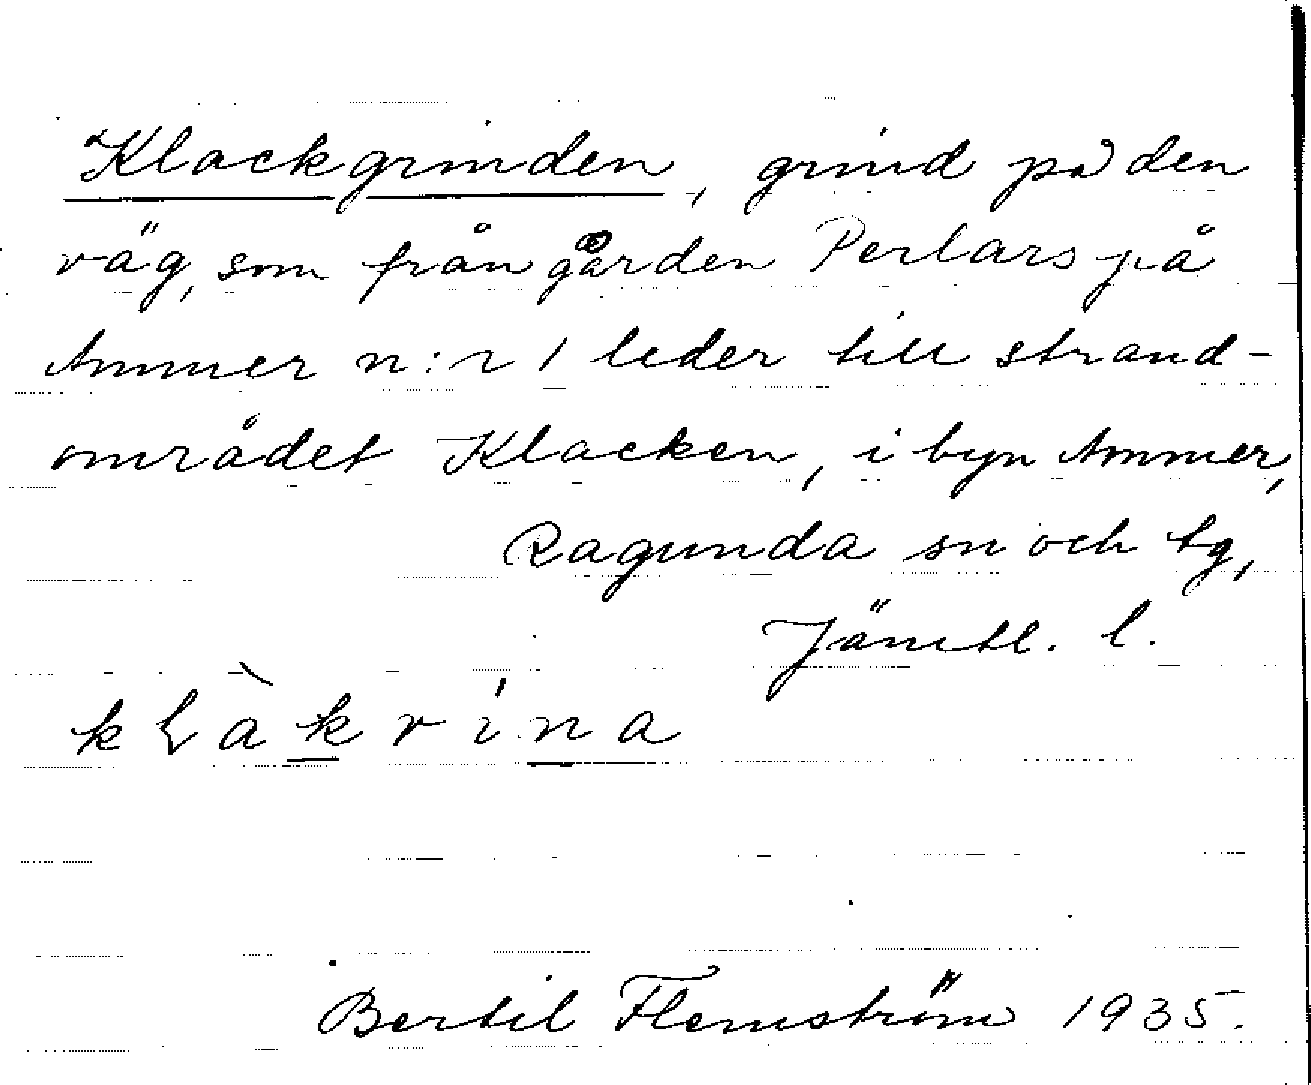 Klackgrinden, grind på den
väg, som från gården Perlars på
Ammer n:r 1 leder till strand-
området Klacken, i byn Ammer,
Ragunda sn och tg,
Jämtl. l.
Bertil Flemström 1935.